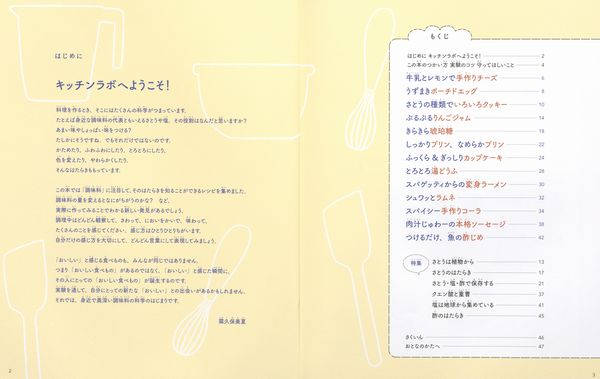 はじめに
キッチンラボへようこそ!
料理を作るとき、そこにはたくさんの科学がつまっています。
たとえば身近な調味料の代表ともいえるさとうや塩。その役割はなんだと思いますか?
あまい味やしょっぱい味をつける?
たしかにそうですね。でもそれだけではないのです。
かためたり、ふわふわにしたり、とろとろにしたり、
色を変えたり、やわらかくしたり。
そんなはたらきももっています。
この本では「調味料」に注目して、そのはたらきを知ることができるレシピを集めました。
調味料の量を変えるとなにがちがうのかな? など、
実際に作ってみることでわかる新しい発見があるでしょう。
調理中はどんどん観察して、さわって、においをかいで、味わって、
たくさんのことを感じてください。感じ方はひとりひとりちがいます。
自分だけの感じ方を大切にして、どんどん言葉にして表現してみましょう。
「おいしい」と感じる食べものも、みんなが同じではありません。
つまり「おいしい食べもの」があるのではなく、「おいしい」と感じた瞬間に、
その人にとっての「おいしい食べもの」が誕生するのです。
実験を通して、自分にとっての新たな「おいしい」との出会いがあるかもしれません。
それでは、身近で奥深い調味料の科学のはじまりです。
露久保美夏
2
もくじ
はじめに キッチンラボへようこそ! 2
この本のつかい方 実験のコツ 守ってほしいこと 4
牛乳とレモンで手作りチーズ 6
うずまきポーチドエッグ 8
さとうの種類でいろいろクッキー 10
ぷるぷるりんごジャム 14
きらきら琥珀糖 18
しっかりプリン、なめらかプリン 22
ふっくら & ぎっしりカップケーキ 24
とろとろ湯どうふ 28
スパゲッティからの変身ラーメン 30
シュワッとラムネ 32
スパイシー手作りコーラ 34
肉汁じゅわーの本格ソーセージ 38
つけるだけ、魚の酢じめ 42
特集
さとうは植物から 13
さとうのはたらき 17
さとう・塩・酢で保存する 21
クエン酸と重曹 37
塩は地球から集めている 41
酢のはたらき 45
さくいん 46
おとなのかたへ 47
3